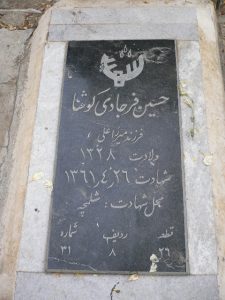 شهید
حسین فرجادی کوشا
فرزند میرزاعلی
ولادت ۱۳۲۸
شهادت ۱۳۶۱٫۴٫۲۶
محل شهادت : شلمچه
قطعه ردیف شماره
۲۶ ۸ ۳۱